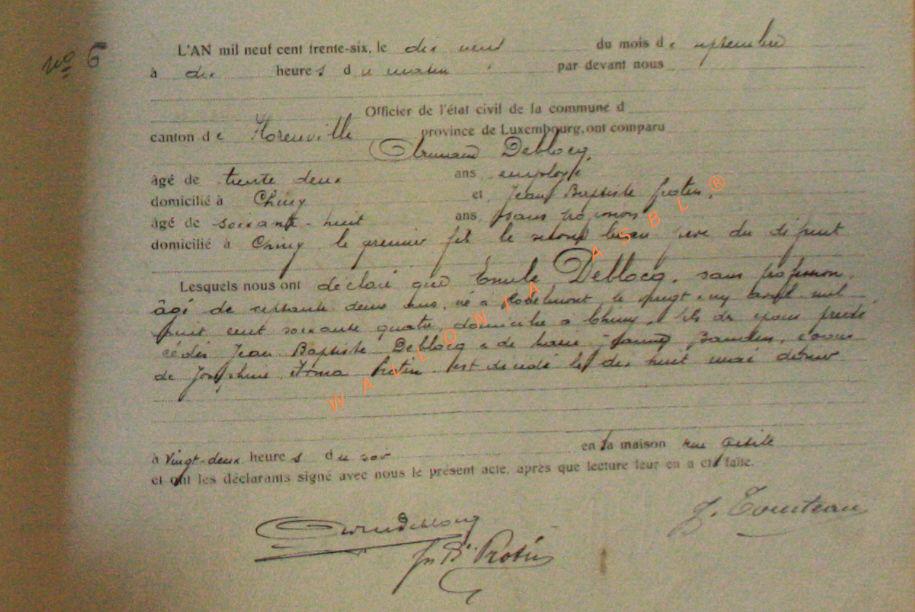 N° 6
L'AN mil neuf cent trente-six, le dix neuf du mois de septembre
à dix heures du matin par devant nous
Officier de l'état civil de la commune d
canton de Florenville province de Luxembourg, ont comparu
Armand Deblocq,
âgé de trente deux ans employé
domicilié à Chiny et Jean Baptiste
âgé de soixante-huit ans, sans profession
domicilié à Chiny le premier fils le second beau père du défunt
Lesquels nous ont déclaré que Emile Deblocq, sans profession,
âgé de septante deux ans, né à le vingt avril mil
huit cent soixante quatre, domicilié à Chiny, fils de époux précé
cédés Jean Baptiste Deblocq & de Marie époux
de Joséphine Irma est décédé le dix huit dernier
à vingt-deux heures du soir en la maison rue
et ont les déclarants signé avec nous le présent acte, après que lecture leur en a été faite.
WALLONIA ASBL®
Deblocq
Jn Bte
J.